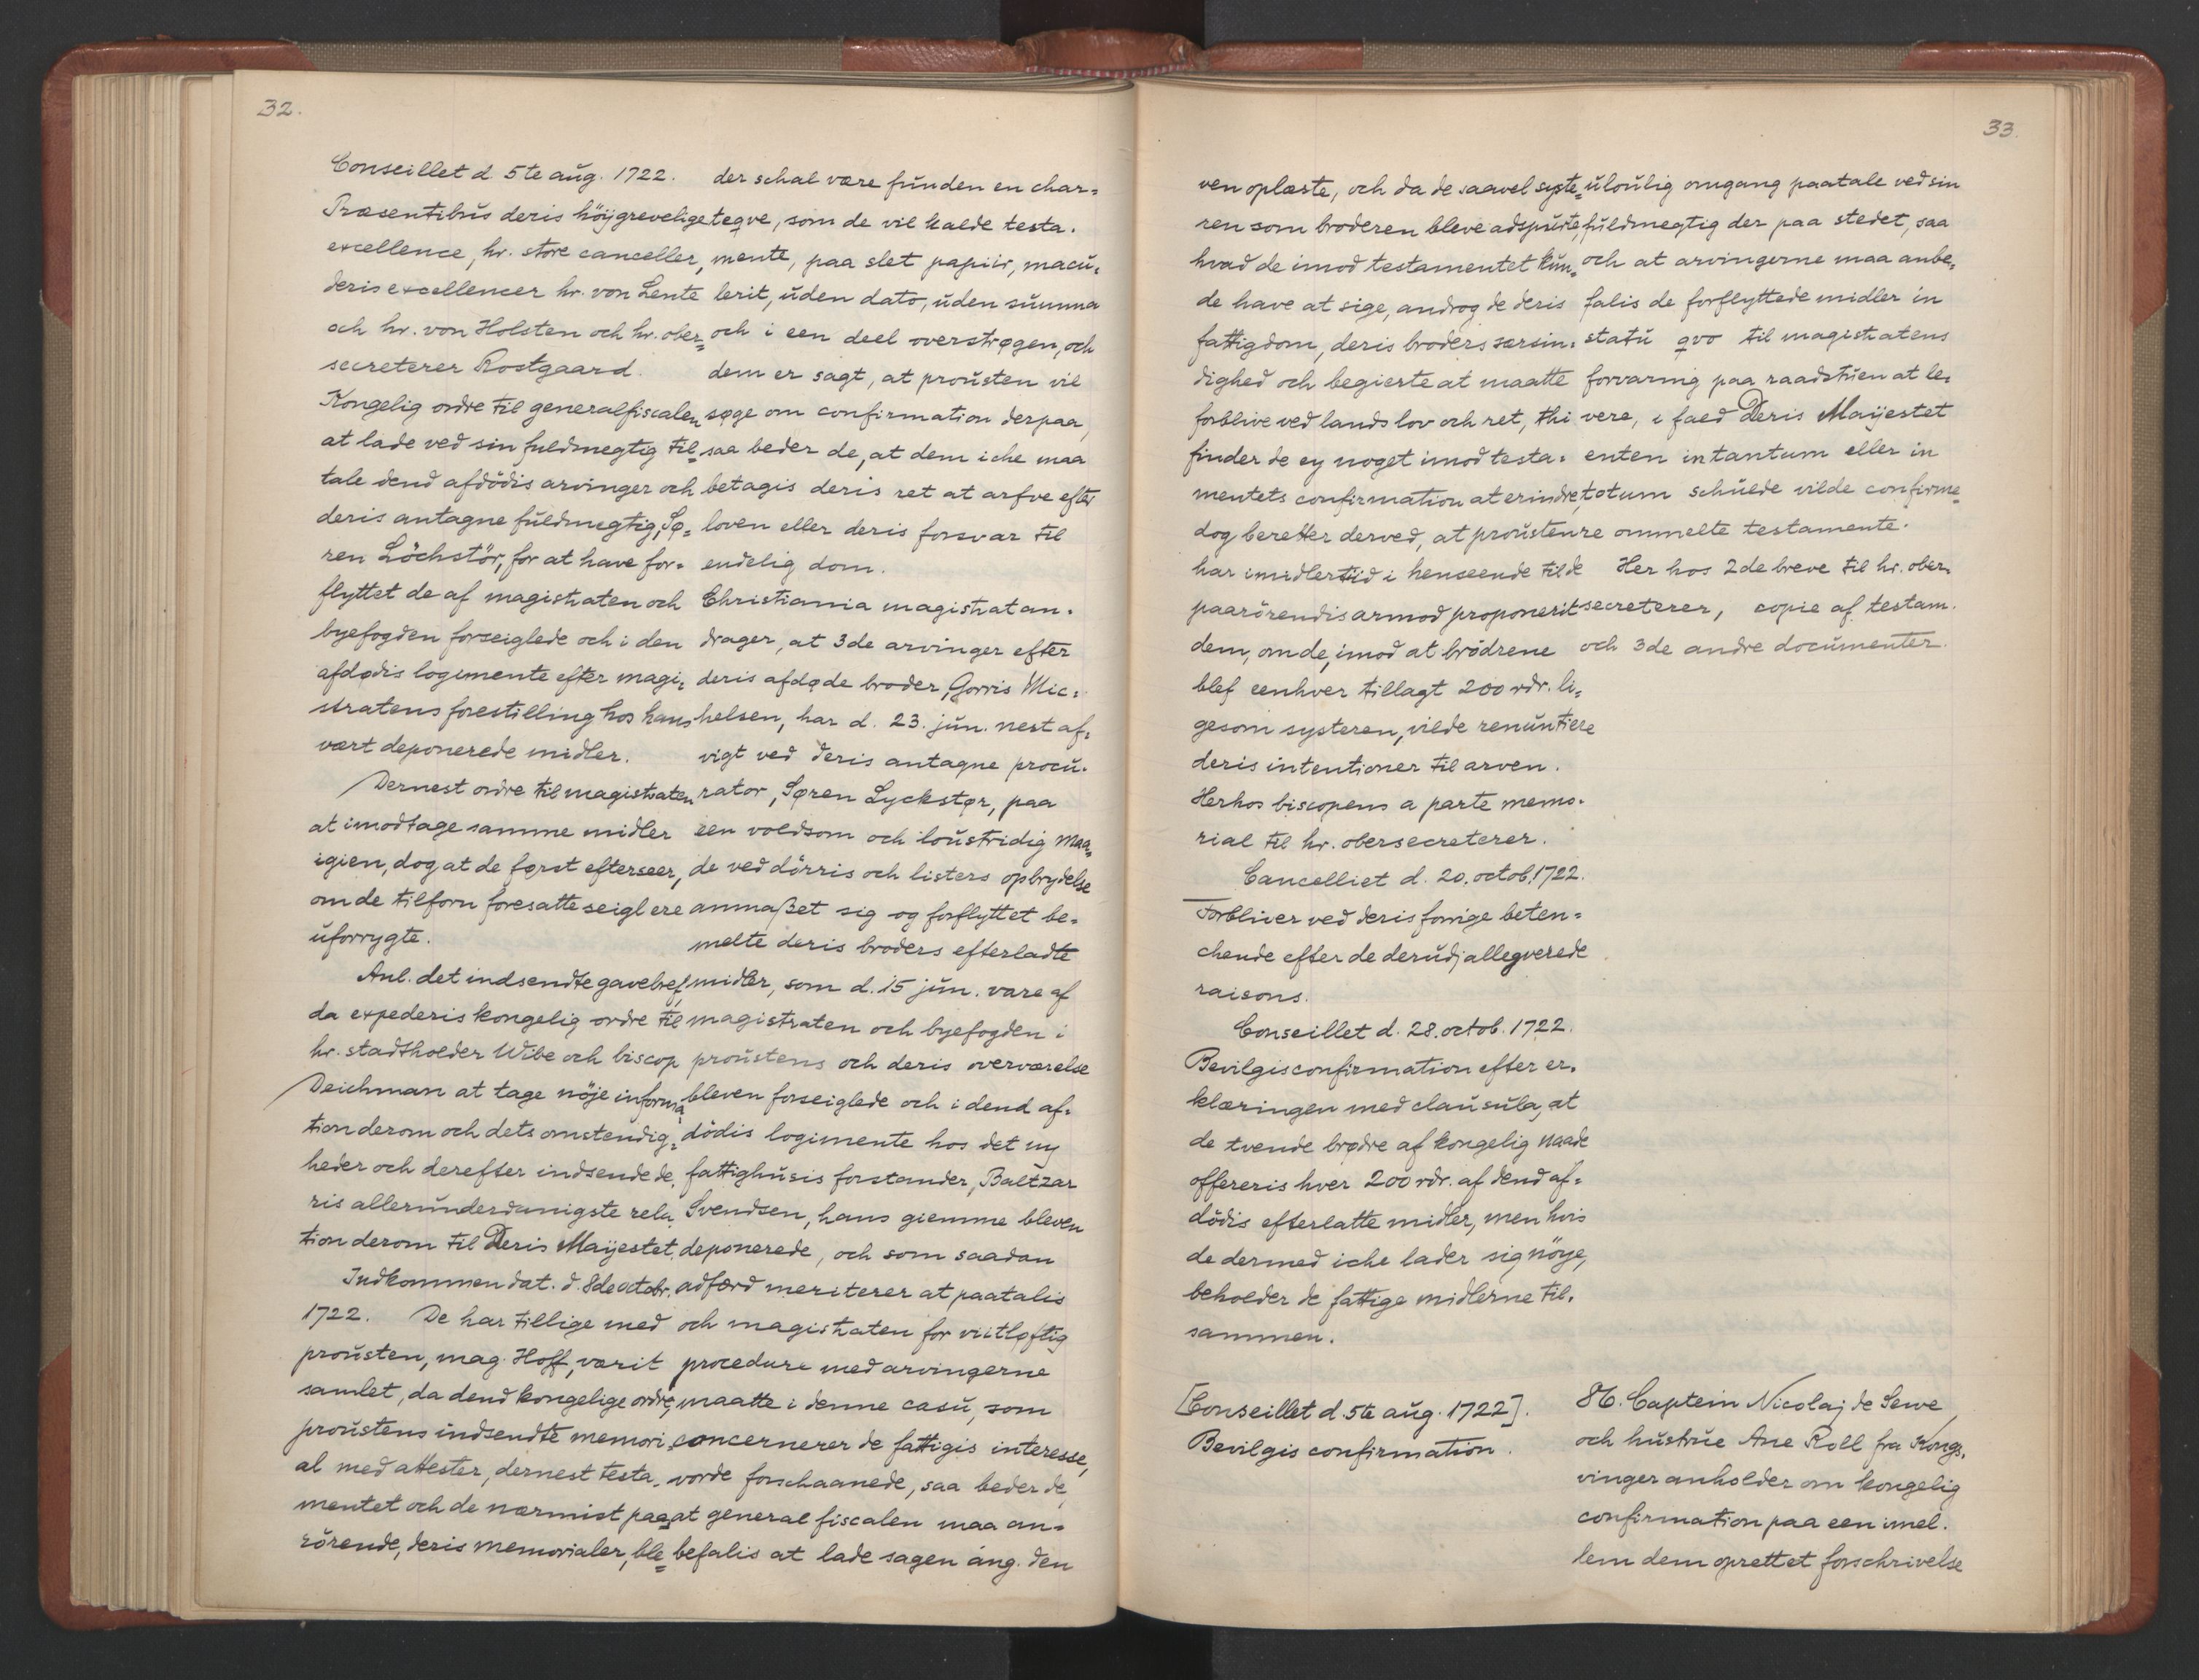 32.
Conseillet d 5te aug. 1722.
Præsentibus deris höijgrevelige
excellence, hr. store canceller,
deris excellencer hr. von Lente
och hr. von Holsten och hr. ober=
secreterer Rostgaard.
Kongelig ordre til generalfiscalen
at lade ved sin fuldmegtig til=
tale dend afdödis arvinger och
deris antagne fuldmegtig, Sø=
ren Löchstör, for at have for=
flyttet de af magistraten och
byefogden forseiglede och i den
afdødis logemente efter magi=
stratens forestilling hos hans
vært deponerede midler.
Dernest ordre til magistraten
at imodtage samme midler
igien, dog at de først efterseer,
om de tilforn foresatte seigl ere
uforrygte.
Anl. det indsendte gavebref,
da expederis kongelig ordre til
hr. stadtholder Wibe och biscop
Deichman at tage nöje informa=
tion derom och dets omstendig=
heder och derefter indsende de=
ris allerunderdanigste rela=
tion derom til Deris Maijestet.
Indkommen dat. d. 8de octobr.
1722. De har tillige med
prousten, mag. Hoff, værit
samlet, da dend kongelige ordre,
proustens indsendte memori=
al med attester, dernest testa=
mentet och de nærmist paa=
rörende, deris memorialer, ble=
der schal være funden en char=
teqve, som de vil kalde testa=
mente, paa slet papiir, macu=
lerit, uden dato, uden summa
och i een deel overstrøgen, och
dem er sagt, at prousten vil
søge om confirmation derpaa,
saa beder de, at dem iche maa
betagis deris ret at arfve efter
loven eller deris forsvar til
endelig dom.
Christiania magistrat an=
drager, at 3de arvinger efter
deris afdøde broder, Gorris Mic=
helsen, har d. 23. jun. nest af=
vigt ved deris antagne procu=
rator, Søren Lyckstør, paa
een voldsom och loustridig maa=
de ved dörris och listers opbrydelse
anmaßet sig og forflyttet be=
melte deris broders efterladte
midler, som d. 15 jun. vare af
magistraten och byefogden i
proustens och deris overværelse
bleven forseiglede och i dend af=
dödis logimente hos det ny
fattighusis forstander, Baltzar
Svendsen, hans giemme bleven
deponerede, och som saadan
adfærd meriterer at paatalis
och magistraten for viitløftig
procedure med arvingerne
maatte i denne casu, som
concernerer de fattigis interesse,
vorde forschaanede, saa beder de,
at general fiscalen maa an=
befalis at lade sagen ang. den
33.
ven oplæste, och da de saavel syste=
ren som broderen bleve adspurte,
hvad de imod testamentet kun=
de have at sige, androg de deris
fattigdom, deris broders særsin=
dighed och begierte at maatte
forblive ved lands lov och ret, thi
finder de ey noget imod testa=
mentets confirmation at erindre,
dog beretter derved, at prousten
har imidlertiid i henseende til de
paarörendis armod proponerit
dem, om de, imod at brödrene
blef eenhver tillagt 200 rdr. li=
gesom systeren, vilde renuntiere
deris intentioner til arven.
Herhos biscopens a parte memo=
rial til hr. obersecreterer.
Cancelliet d. 20. octob. 1722.
Forbliver ved deris forrige beten=
chende efter de derudj allegverede
raisons.
Conseillet d. 28. octob. 1722.
Bevilgis confirmation efter er=
klæringen med clausula, at
de tvende brødre af kongelig naade
offereris hver 200 rdr. af dend af=
dödis efterlatte midler, men hvis
de dermed iche lader sig nöye,
beholder de fattige midlerne til=
sammen.
[Conseillet d. 5te aug. 1722].
Bevilgis confirmation.
uloulig omgang paatale ved sin
fuldmegtig der paa stedet, saa
och at arvingerne maa anbe=
falis de forflyttede midler in
statu qvo til magistratens
forvaring paa raadstuen at le=
vere, i faed Deris Maijestet
enten in tantum eller in
totum schulde vilde confirme=
re ommelte testamente.
Her hos 2de breve til hr. ober=
secreterer, copie af testam.
och 3de andre documenter.
86. Captein Nicolaj de Sewe
och hustrue Ane Roll fra Kongs=
vinger anholder om kongelig
confirmation paa een imel=
lem dem oprettet forschrivelse